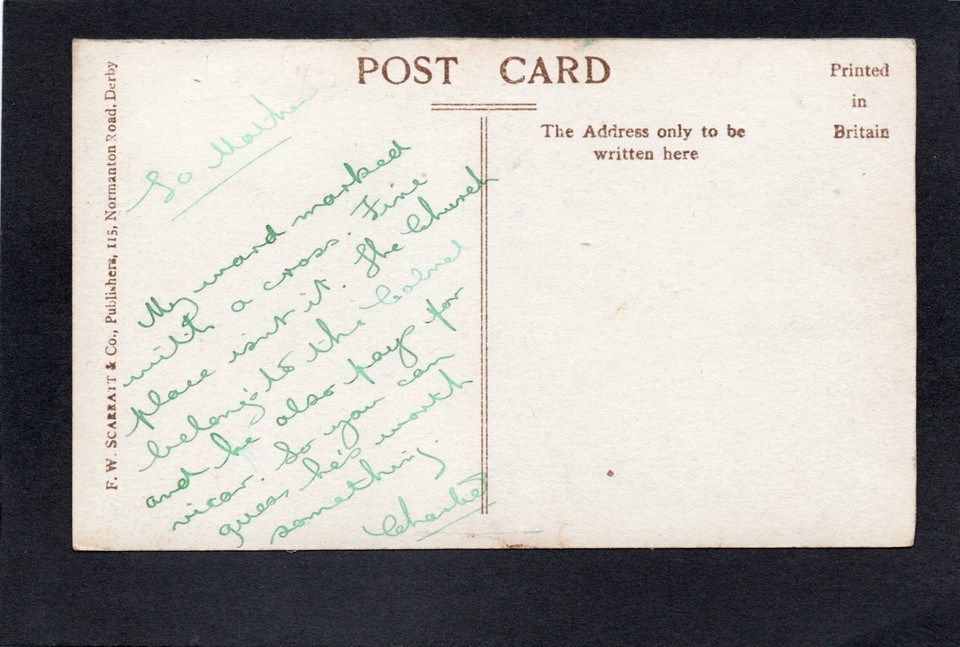 POST CARD
Printed
in
Britain
The Address only to be
written here
F. W. SCARRATT & Co., Publishers, 115, Normanton Road, Derby
To Mother
My ward marked
with a cross. Fine
place isn't it. The Church
belongs to the Colonel
and he also pays for
vicar. So you can
guess he's worth
something
Charlie